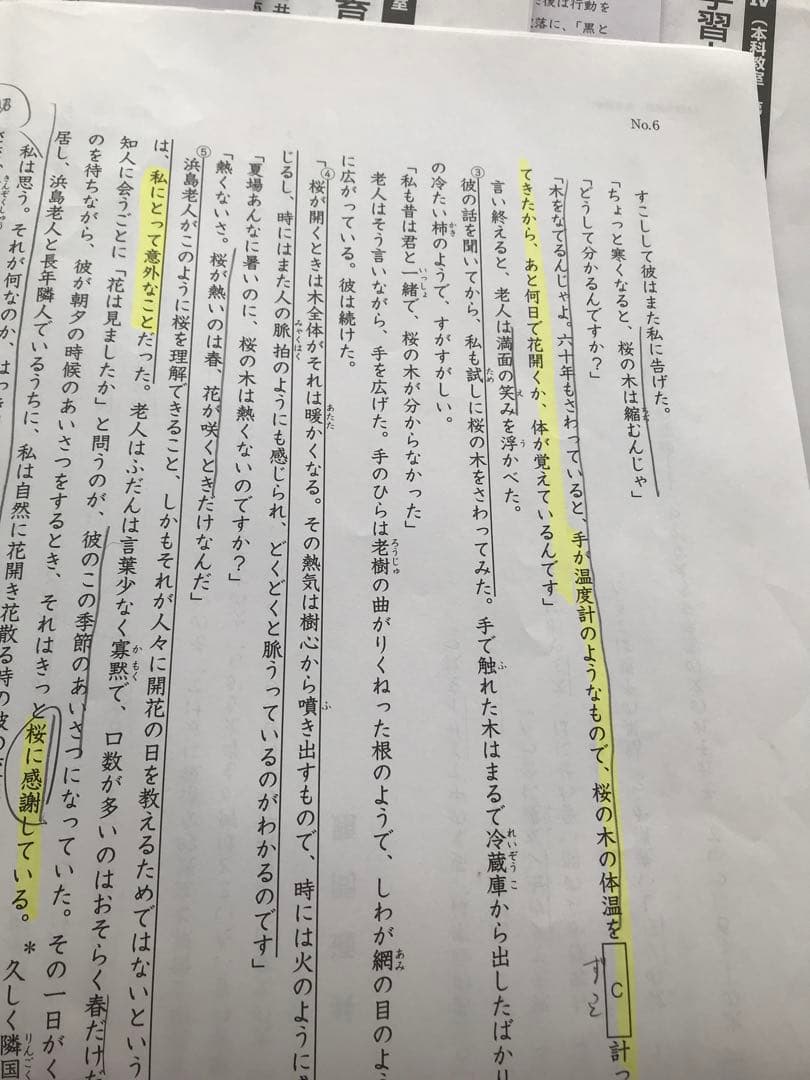 No.6
すこしして彼はまた私に告げた。
「ちょっと寒くなると、桜の木は縮むんじゃ」
「どうして分かるんですか？」
「木をなてるんじゃよ。六十年もさわっていると、手が温度計のようなもので、桜の木の体温を C 計っ
てきたから、あと何日で花開くか、体が覚えているんです」
言い終えると、老人は満面の笑みを浮かべた。
③彼の話を聞いてから、私も試しに桜の木をさわってみた。手で触れた木はまるで冷蔵庫から出したばかり
の冷たい柿のようで、すがすがしい。
「私も昔は君と一緒で、桜の木が分からなかった」
老人はそう言いながら、手を広げた。手のひらは老樹の曲がりくねった根のようで、しわが網の目のよう
に広がっている。彼は続けた。
「④桜が開くときは木全体がそれは暖かくなる。その熱気は樹心から噴き出すもので、時には火のように
じるし、時にはまた人の脈拍のようにも感じられ、どくどくと脈うっているのがわかるのです」
「夏場あんなに暑いのに、桜の木は熱くないのですか？」
「熱くないさ。桜が熱いのは春、花が咲くときだけなんだ」
⑤浜島老人がこのように桜を理解できること、しかもそれが人々に開花の日を教えるためではないという
は、私にとって意外なことだった。老人はふだんは言葉少なく寡黙で、口数が多いのはおそらく春だけだ
知人に会うごとに「花は見ましたか」と問うのが、彼のこの季節のあいさつになっていた。その一日がく
のを待ちながら、彼が朝夕の時候のあいさつをするとき、それはきっと桜に感謝している。＊久しく隣国
居し、浜島老人と長年隣人でいるうちに、私は自然に花開き花散る時の彼の
私は思う。それが何なのか、はっき
ずっと